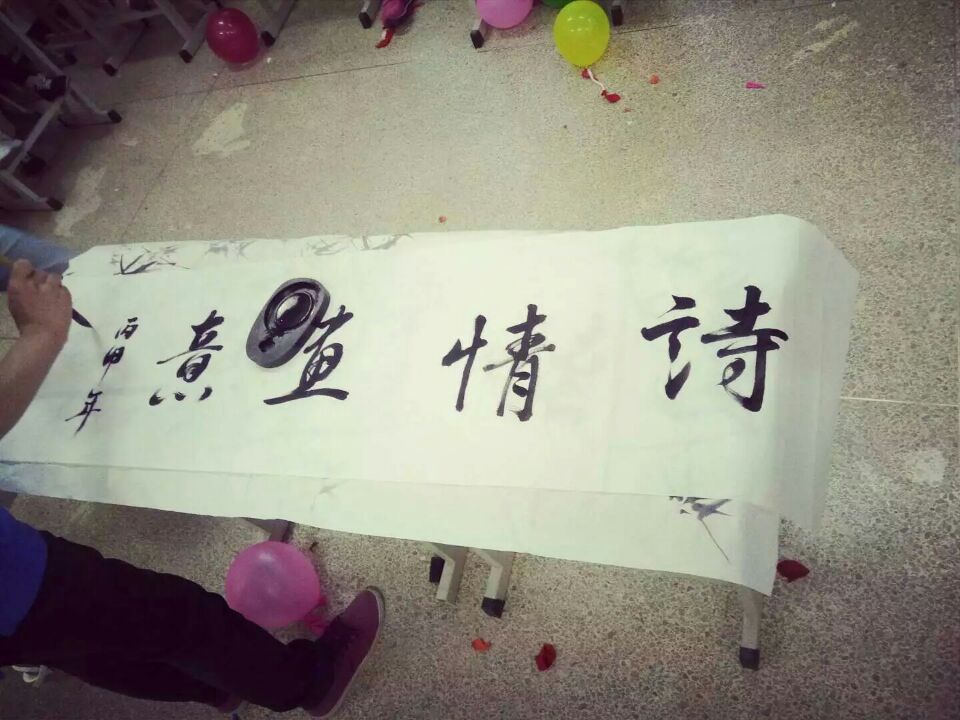 詩情画意
丙申年